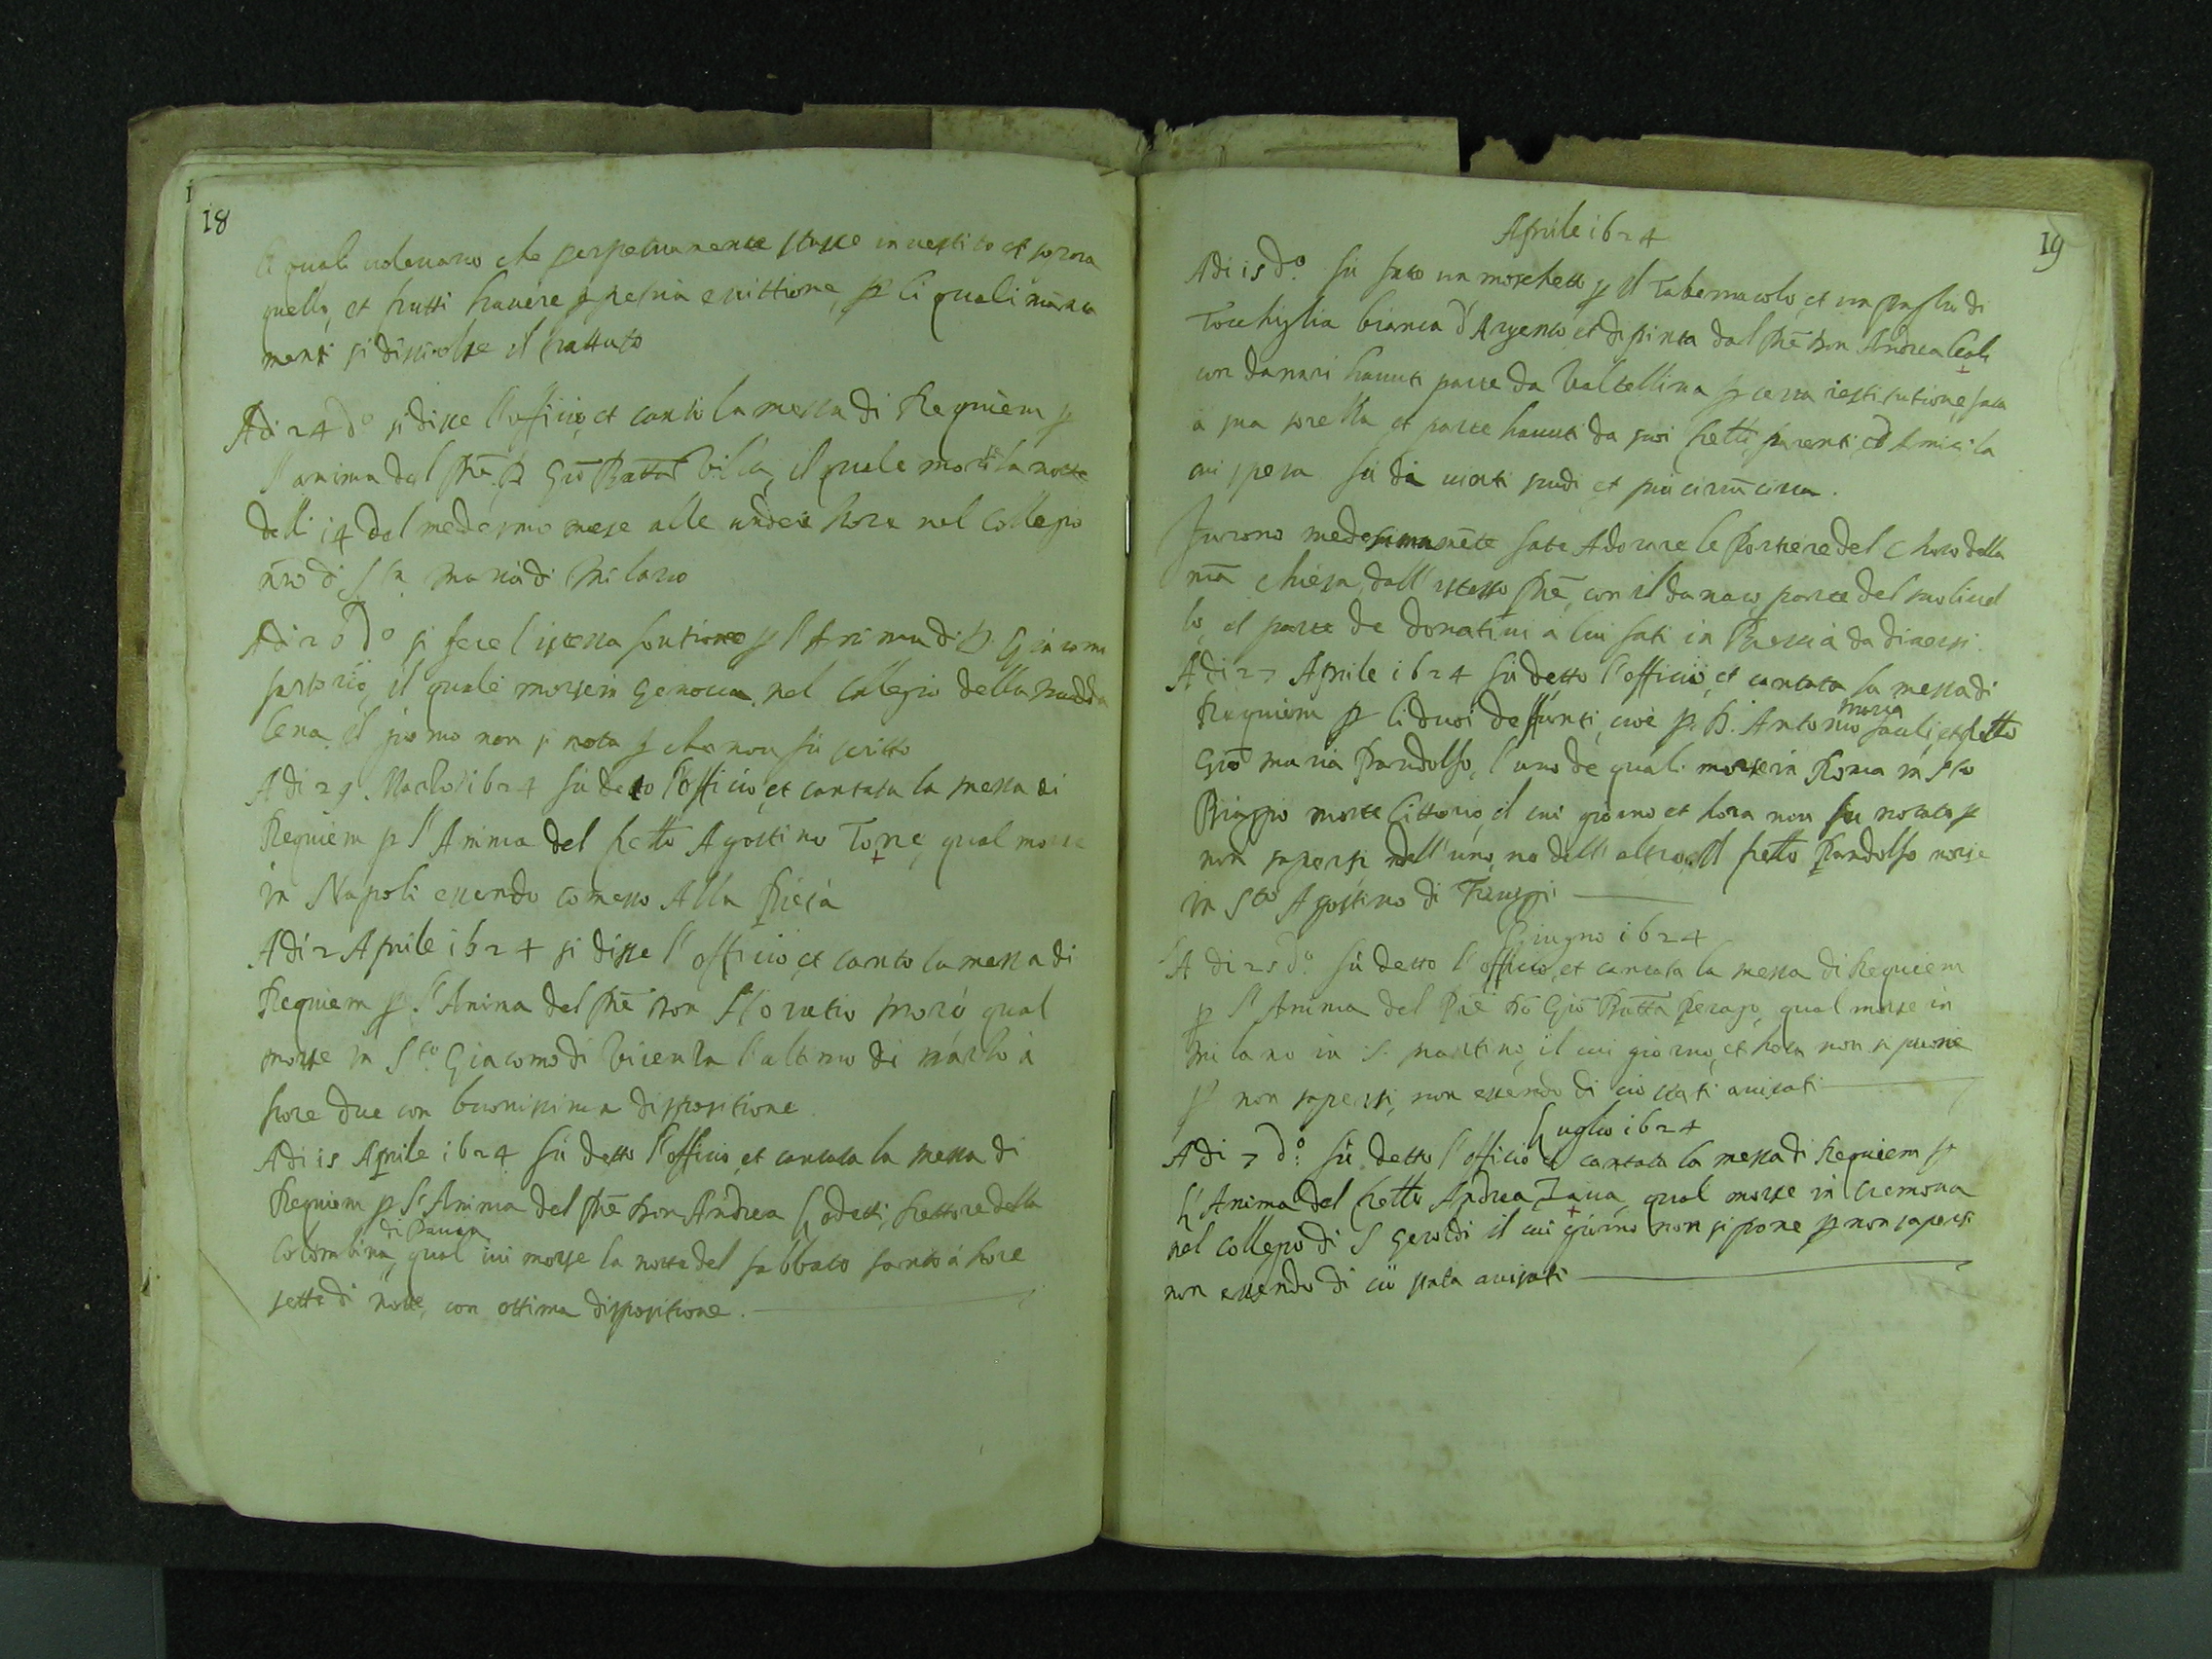 18
le quali voleuano che perpetuamente stasse inuestito et sopora
quello, et frutti hauere propria euittione, p li quali manca
menti si dissciolse il trattato
Adi 24 do si disse l'officio, et cantò la messa di Requiem p
l'anima del Pre D Gio Batta Villa, il quale morse la notte
delli 14 del medesmo mese alle undeci hore nel Collegio
nro di Sta Maria di Milano
Adi 26 do si fece l'istessa fontione p l'Anima di D. Giacomo
Sartorio, il quale morse in Genoua nel Collegio della Madda
lena, il giorno non si nota p che non fù scritto
Adi 29. Marzo 1624 fù detto l'officio, et cantata la messa di
Requiem p l'Anima del fratto Agostino Torre, qual morse
in Napoli essendo comesso Alla
Adi 2 Aprile 1624 si disse l'officio, et canto la messa di
Requiem p l'Anima del Pre Don Horatio Moro qual
morse in Sto Giacomo di Vicenza l'ultimo di Marzo à
hore due con buonissima dispositione
Adi 15 Aprile 1624 fù detto l'officio, et cantata la messa di
Requiem p l'Anima del Pre Don Andrea Lodetti, Rettore della
di Pauia
Colombina, qual iui morse la notte del sabbato santo à hore
sette di notte, con ottima dispositione.
19
Aprile 1624
Adi 15 do. fù fatto un moschetto p il Tabernacolo, et un di
Tocchiglia bianca d'Argento, et dipinta dal Pre Don Andrea Leoli
con danari hauuti parte da Valtellina p certa restitutione, fata
à sua sorella et parte hauuti da suoi frelli, parenti, ed Amici la
cui spesa fù di uenti scudi et più circa.
Furono medesimamete fate Adorare le Portiere del Choro della
nra chiesa, dall'istesso Pre, con il danaro, parte del suo liuel
lo, et parte de donatiui à lui fati in Brescia da diuersi.
Adi 27 Aprile 1624 fù detto l'officio, et cantata la messa di
Requiem p li duoi deffunti, cioè p D. Antonio
Maria
Sauli, et fratto
Gio Maria Pandolfo, l'uno de quali morse in Roma in Sto
Biaggio Monte Cittorio, il cui giorno et hora non fù notata p
non sapersi nell'uno, ne dell'altro. Il fratto Pandolfo morse
in Sto Agostino di Treuiggi
Giugno 1624
Adi 25 do. fù detto l'officio, et cantata la messa di Requiem
p l'Anima del Pre Do Gio Batta Perago, qual morse in
Milano in S. Martino, il cui giorno, et hora non si pone
p non sapersi, non essendo di ciò stati auisati
Luglio 1624
Adi 7 do: fù detto l'officio et cantata la messa di Requiem p
L'Anima del fratto Andrea Zaua, qual morse in Cremona
nel collegio di S Geroldi il cui giorno non si pone p non sapersi
non essendo di ciò stata auisati